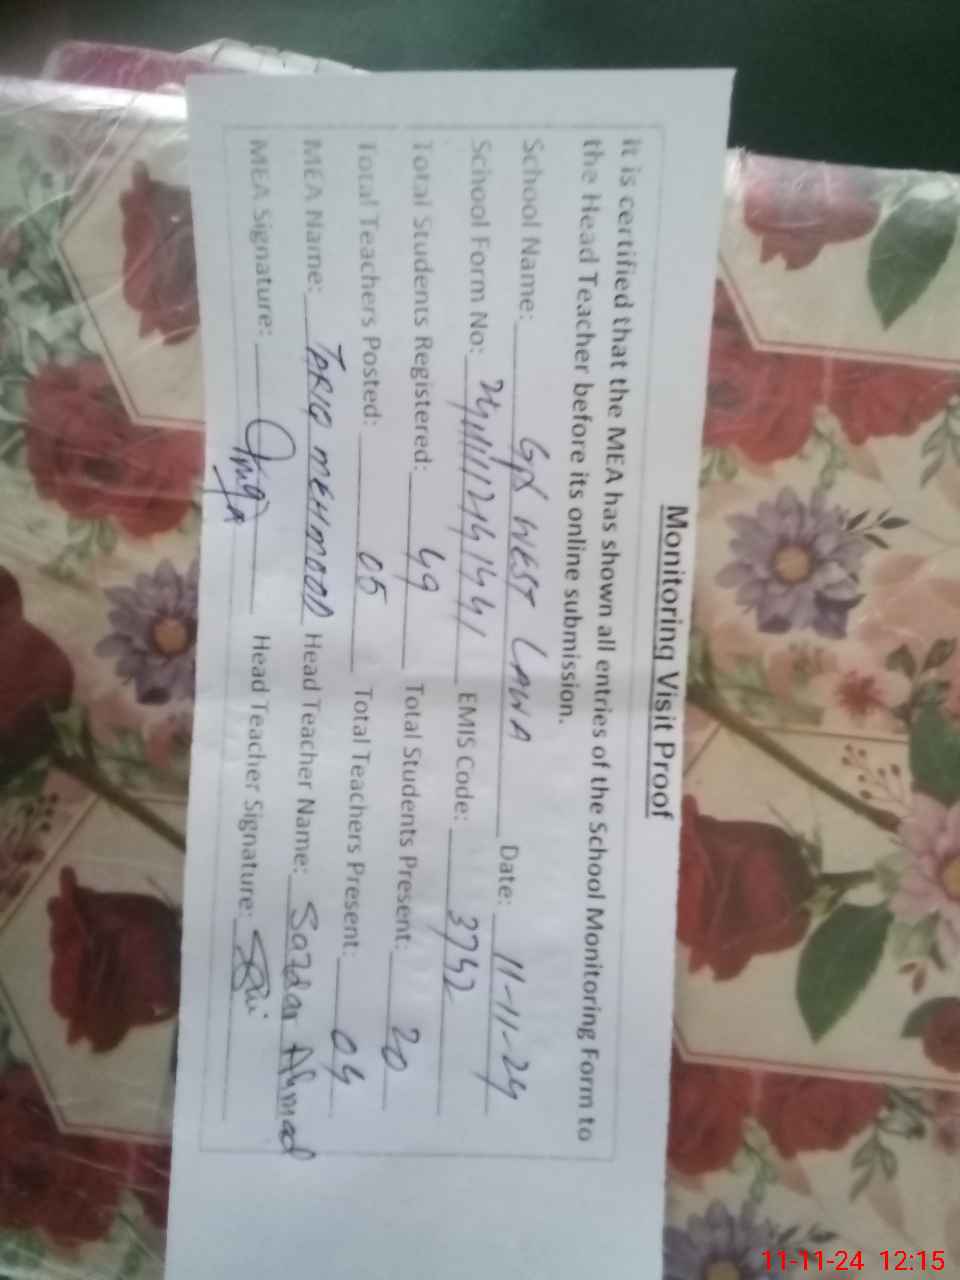 Monitoring Visit Proof
It is certified that the MEA has shown all entries of the School Monitoring Form to
the Head Teacher before its online submission.
School Name: WEST LAWA Date: 11-11-24
School Form No: EMIS Code: 3742
Total Students Registered: 49 Total Students Present: 20
Total Teachers Posted: 05 Total Teachers Present: 04
MEA Name: TARIQ MEHMOOD Head Teacher Name: Sardar Ahmad
MEA Signature: Head Teacher Signature:
11-11-24 12:15